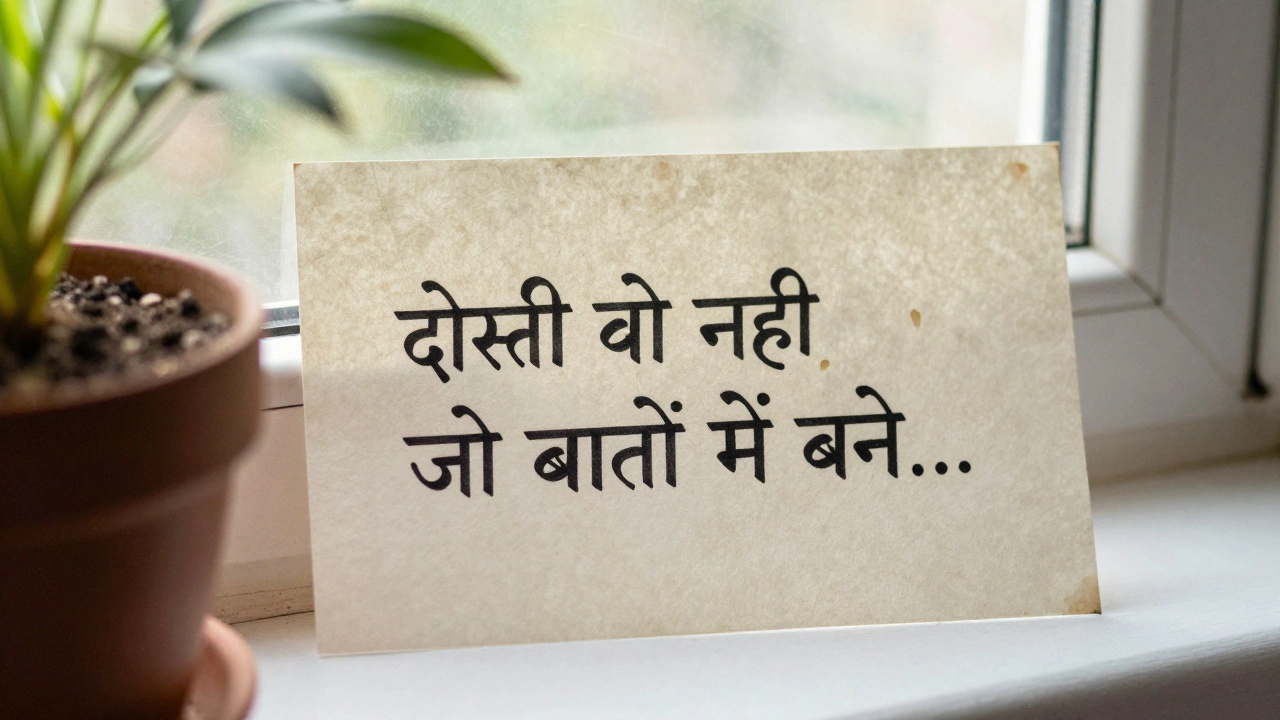 दोस्ती वो नही
जो बातों में बने...